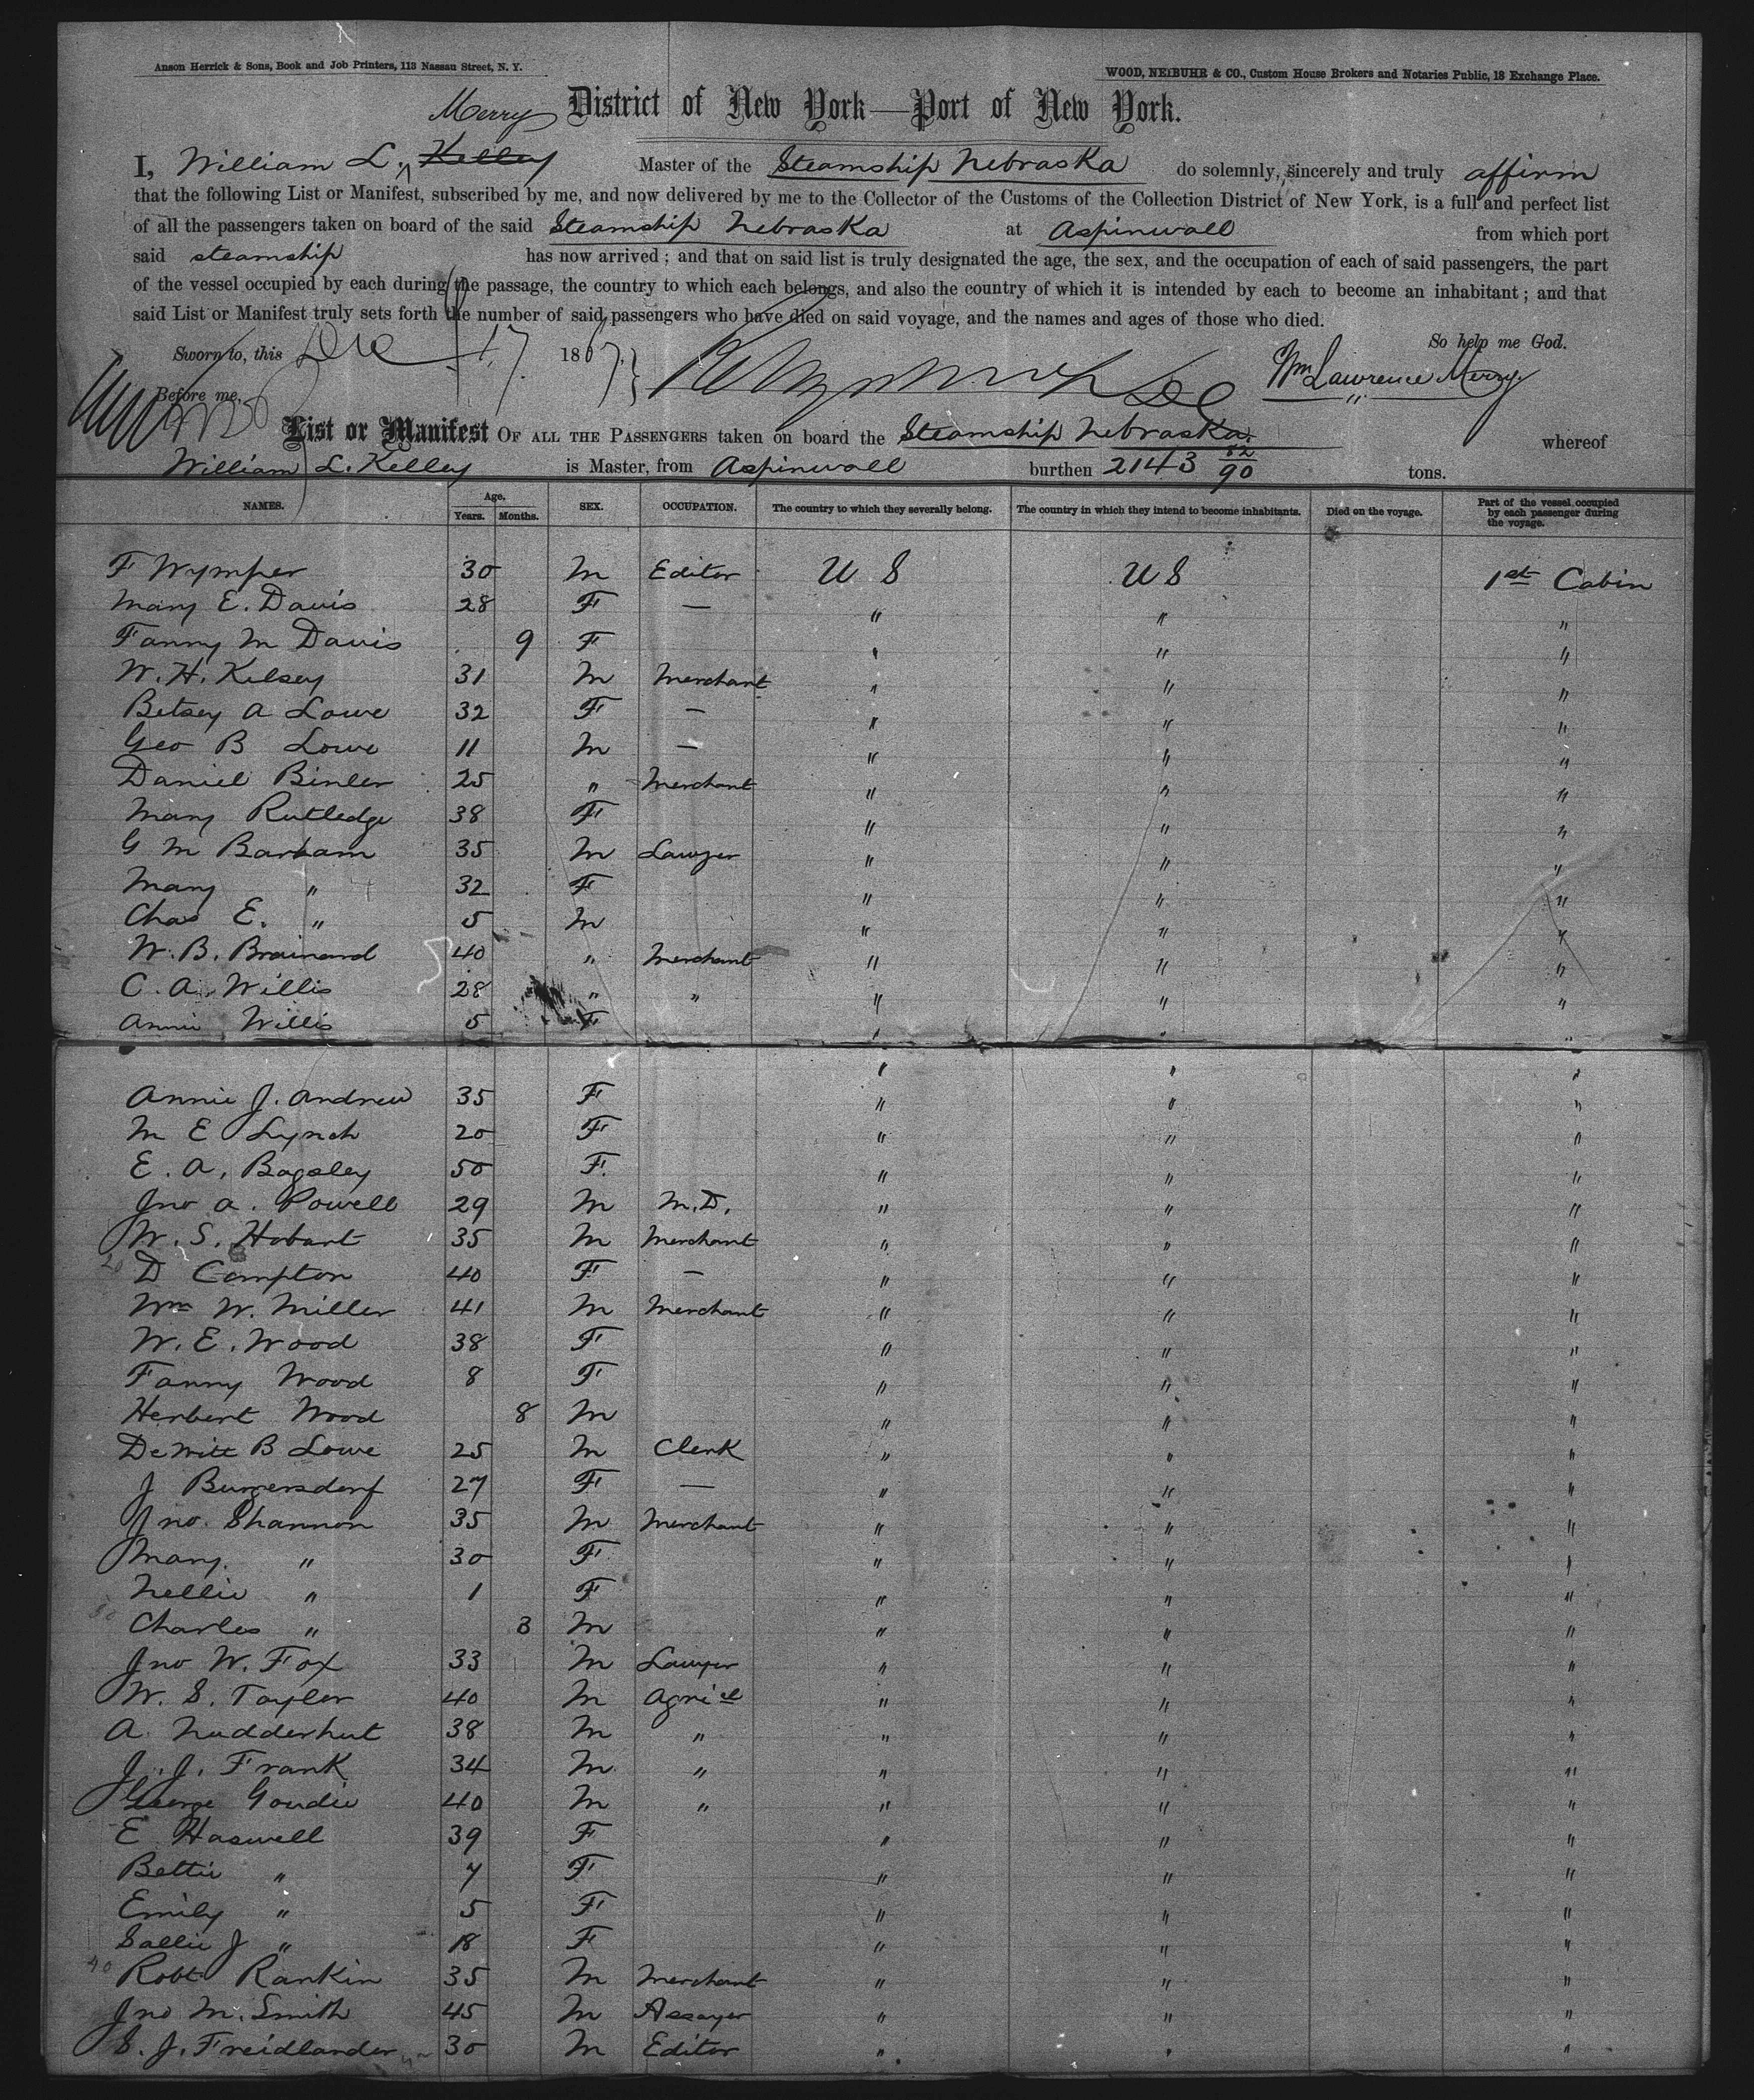 Anson Herrick & Sons, Book and Job Printers, 113 Nassau Street, N. Y.
WOOD, NEIBUHR & CO., Custom House Brokers and Notaries Public, 18 Exchange Place.
District of New York—Port of New York.
Merry
I, William L. Kelley Master of the Steamship Nebraska do solemnly, sincerely and truly affirm
that the following List or Manifest, subscribed by me, and now delivered by me to the Collector of the Customs of the Collection District of New York, is a full and perfect list
of all the passengers taken on board of the said Steamship Nebraska at Aspinwall from which port
said steamship has now arrived; and that on said list is truly designated the age, the sex, and the occupation of each of said passengers, the part
of the vessel occupied by each during the passage, the country to which each belongs, and also the country of which it is intended by each to become an inhabitant; and that
said List or Manifest truly sets forth the number of said passengers who have died on said voyage, and the names and ages of those who died.
So help me God.
Sworn to, this Dec 17 1867.
Wm Lawrence Merry
Before me,
List or Manifest OF ALL THE PASSENGERS taken on board the Steamship Nebraska. whereof
William L. Kelley is Master, from Aspinwall burthen 2143 52/90 tons.
NAMES. Age. Years. Months. SEX. OCCUPATION. The country to which they severally belong. The country in which they intend to become inhabitants. Died on the voyage. Part of the vessel occupied by each passenger during the voyage.
F Wymper 30 M Editor U S U S 1st Cabin
Mary E. Davis 28 F — " " "
Fanny M Davis 9 F " " "
W. H. Kelsey 31 M Merchant " " "
Betsey A Lowe 32 F — " " "
Geo B Lowe 11 M — " " "
Daniel Binler 25 " Merchant " " "
Mary Rutledge 38 F " " "
G M Barham 35 M Lawyer " " "
Mary " 32 F " " "
Chas E. " 5 M " " "
W. B. Brainard 40 " Merchant " " "
C. A. Willis 28 " " " " "
Annie Willis 5 F " " "
" " "
Annie J. Andrew 35 F " " "
M E Lynch 20 F " " "
E. A. Bagsley 50 F. " " "
Jno A. Powell 29 M M.D. " " "
W. S. Hobart 35 M Merchant " " "
20 D Compton 40 F — " " "
Wm W. Miller 41 M Merchant " " "
W. E. Wood 38 F " " "
Fanny Wood 8 F " " "
Herbert Wood 8 M " " "
DeWitt B Lowe 25 M Clerk " " "
J Burgersdorf 27 F — " " "
Jno. Shannon 35 M Merchant " " "
Mary. " 30 F " " "
Nellie " 1 F " " "
30 Charles " 3 M " " "
Jno W. Fox 33 M Lawyer " " "
W. S. Tayler 40 M Agricl " " "
A. Nudderhut 38 M " " " "
J. J. Frank 34 M " " " "
George Goudie 40 M " " " "
E Haswell 39 F " " "
Bettie " 7 F " " "
Emily " 5 F " " "
Sallie J " 18 F " " "
40 Robt Rankin 35 M Merchant " " "
Jno M. Smith 45 M Assayer " " "
S. J. Freidlander 30 M Editor " " "